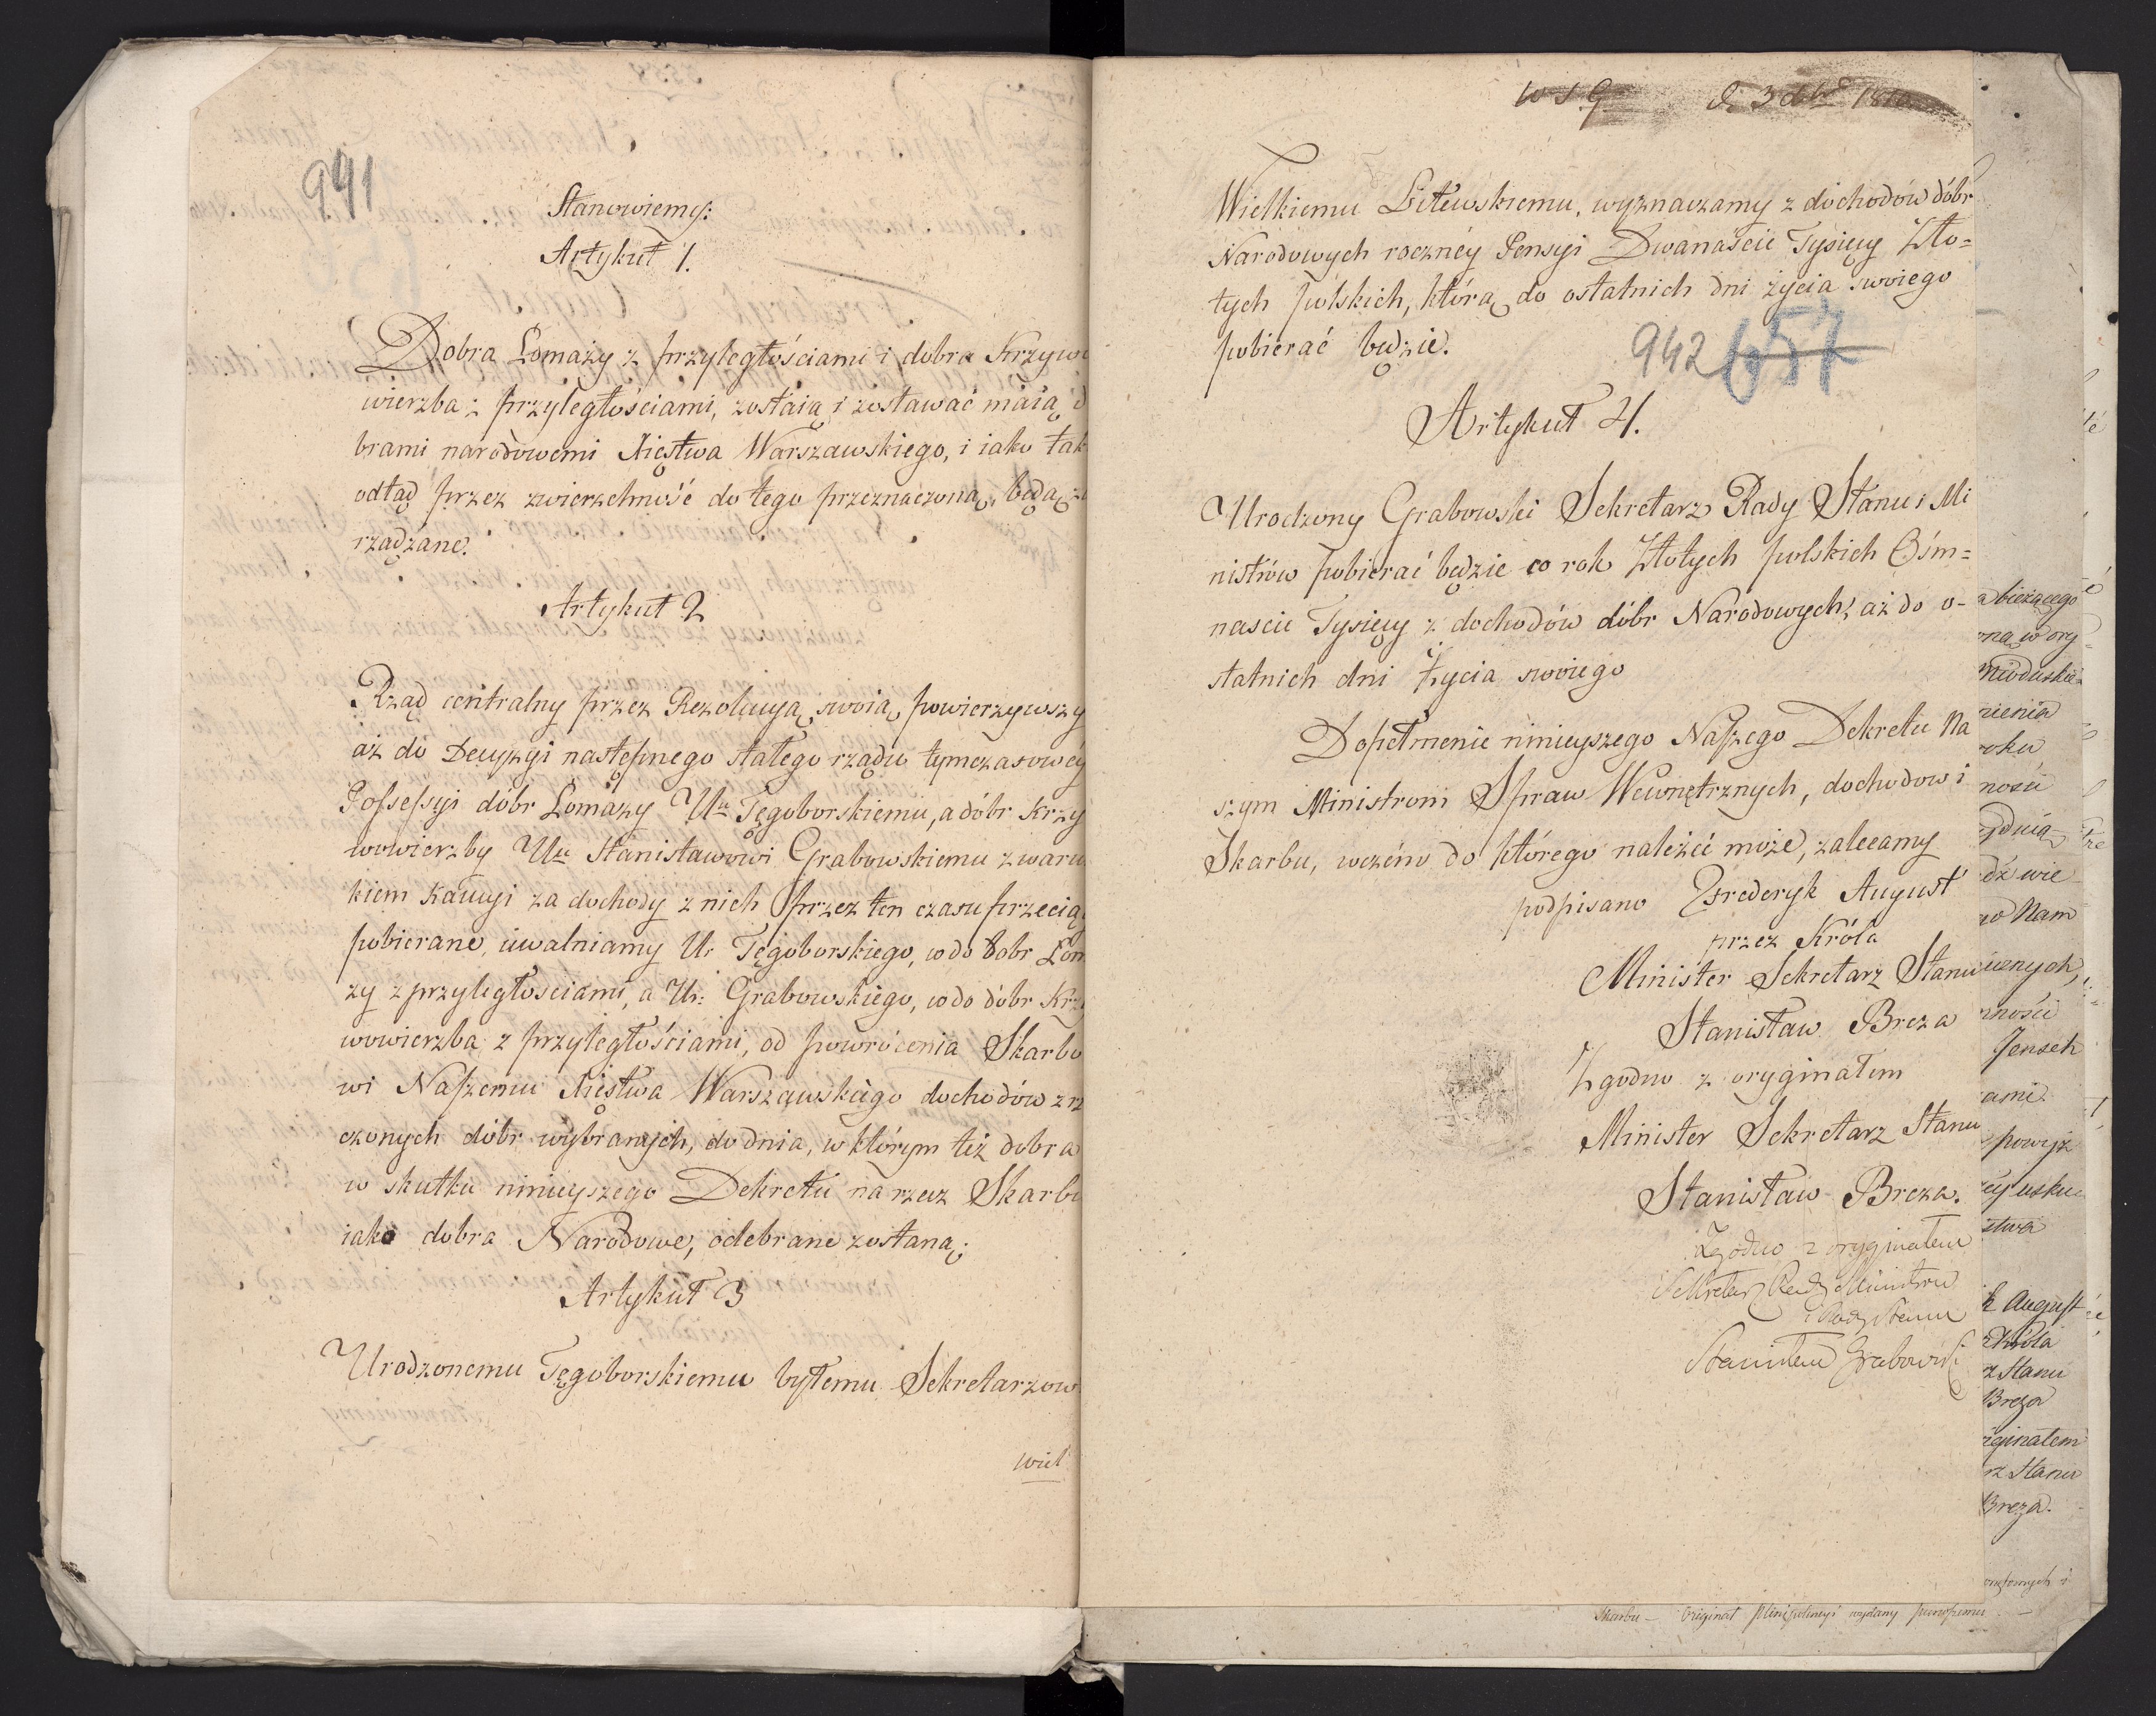 941
Stanowiemy:
Artykuł 1.
Dobra Łomazy z przyległościami i dobra Krzywo
wierzba z przyległościami, zostaią i zostawać maią d
brami narodowemi Xięstwa Warszawskiego, i iako tak
odtąd przez zwierzchność do tego przeznaczoną, będą z
rządzane.
Artykuł 2
Rząd centralny przez Rezolucyą swoią powierzywszy
aż do Decyzyi następnego stałego rządu tymczasowéy
Possessyi dóbr Łomazy Ur. Tęgoborskiemu, a dóbr Krzy
wowierzby Ur. Stanisławowi Grabowskiemu z waru
kiem Kaucyi za dochody z nich przez ten czasu przeciąg
pobierane, uwalniamy Ur Tęgoborskiego, co do dobr Łom
zy z przyległosciami, a Ur: Grabowskiego, co do dóbr Krzy
wowierzba z przyległościami, od powrócenia Skarbo
wi Naszemu Xięstwa Warszawskiego dochodów z rz
czonych dóbr wybranych, do dnia, w którym też dobra
w skutku ninieyszego Dekretu na rzecz Skarbu
iako dobra Narodowe, odebrane zostaną;
Artykuł 3
Urodzonemu Tęgoborskiemu byłemu Sekretarzow
wiel
w S. G. d. 3 1810
Wielkiemu Litewskiemu, wyznaczamy z dochodów dóbr
Narodowych roczney Pensyi Dwanaście Tysięcy Zło=
tych polskich, którą do ostatnich dni życia swoiego
pobierać będzie.
942 657
Artykuł 4.
Urodzony Grabowski Sekretarz Rady Stanu i Mi
nistrów pobierać będzie co rok Złotych polskich Ośm=
nascie Tysięcy z dochodów dóbr Narodowych, aż do o-
statnich dni życia swoiego
Dopełnienie ninieyszego Naszego Dekretu Na
szym Ministrom Spraw Wewnętrznych, dochodow i
Skarbu, wczém do którego należéć może, zalecamy
podpisano Frederyk August
przez Króla
Minister Sekretarz Stanu
Stanisław Breza
Zgodno z oryginałem
Minister Sekretarz Stanu
Stanisław Breza.
Zgodno z oryginałem
Sekretarz Rady Ministrow
i Rady Stanu
Stanisław Grabowski
bieżącego
ną w ory
nienia
roku
ności
dź wie
wo Nam
icznych,
ności
Jensch
ami.
powyż
ey usku
stwa
k August
Króla
rz Stanu
Breza
riginałem
rz Stanu
Breza.
Skarbu — Originał wydany